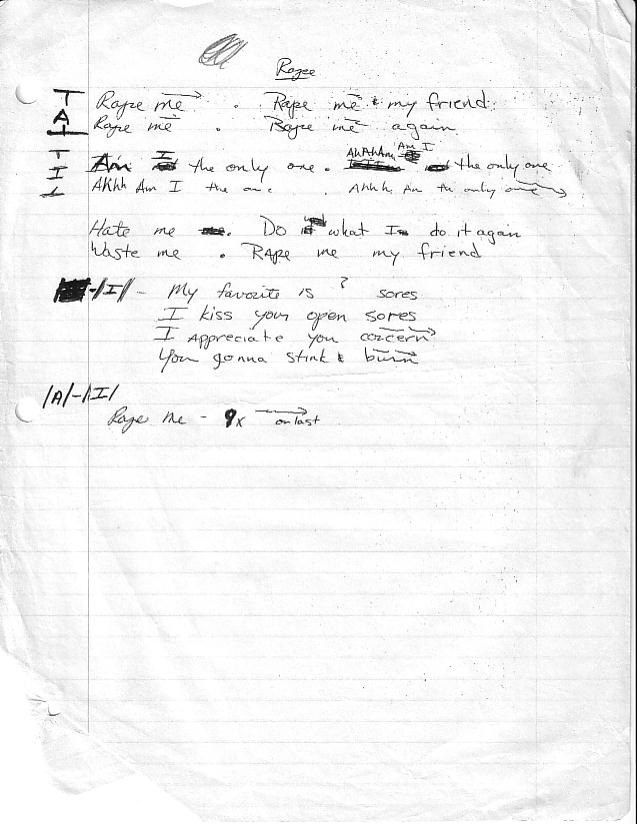 Rapee
Rape me . Rape me & my friend
Rape me . Rape me again
Am I the only one . AhAhAhm Am I the only one
Ahhh Am I the one . Ahhh Am the only one
Hate me . Do what I do it again
Waste me . Rape me my friend
/I/ - My favorite is ? sores
I kiss your open sores
I Appreciate you concern
You gonna stink & burn
/A/-/I/
Rape Me - 9x on last